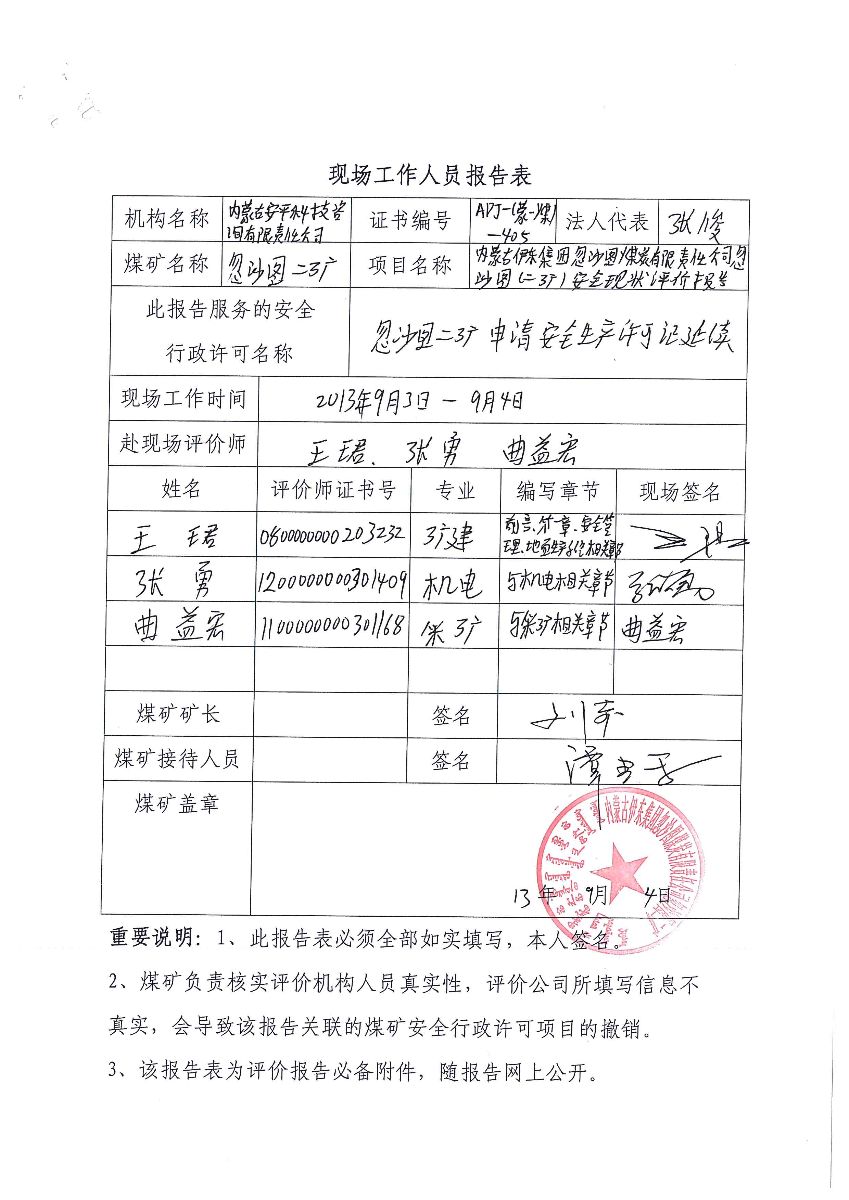 现场工作人员报告表
机构名称 内蒙古安平科技咨 证书编号 APJ-(蒙·煤) 法人代表 张俊
询有限责任公司 -405
煤矿名称 忽沙图二矿 项目名称 内蒙古伊东集团忽沙图煤炭有限责任公司忽
沙图(二矿)安全现状评价报告
此报告服务的安全
行政许可名称
忽沙图二矿申请安全生产许可证延续
现场工作时间 2013年9月3日-9月4日
赴现场评价师 王珺、张勇 曲益宏
姓名 评价师证书号 专业 编写章节 现场签名
王珺 0800000000203232 矿建 前言、第一章、安全管
理、地质 相关章节
张勇 1200000000301409 机电 与机电相关章节
曲益宏 1100000000301168 采矿 与采矿相关章节 曲益宏
煤矿矿长 签名
煤矿接待人员 签名
煤矿盖章
13年 9月 4日
重要说明：1、此报告表必须全部如实填写，本人签名。
2、煤矿负责核实评价机构人员真实性，评价公司所填写信息不
真实，会导致该报告关联的煤矿安全行政许可项目的撤销。
3、该报告表为评价报告必备附件，随报告网上公开。